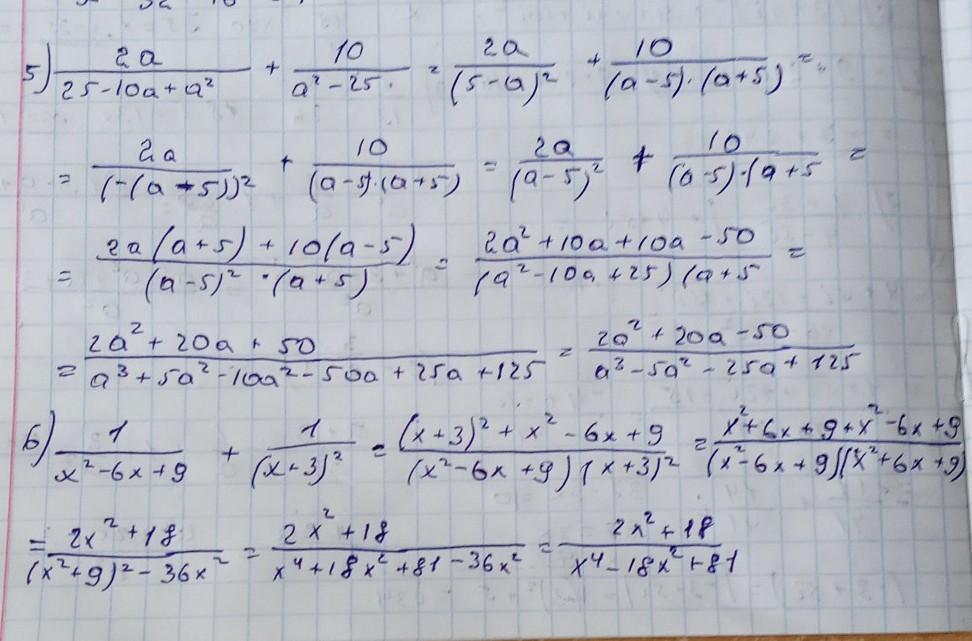 5) 2a/(25-10a+a²) + 10/(a²-25) = 2a/(5-a)² + 10/((a-5)·(a+5)) =
= 2a/(-(a+5))² + 10/((a-5)·(a+5)) = 2a/(a-5)² + 10/((a-5)·(a+5 =
= (2a(a+5)+10(a-5))/((a-5)²·(a+5)) = (2a²+10a+10a-50)/((a²-10a+25)(a+5 =
= (2a²+20a+50)/(a³+5a²-10a²-50a+25a+125) = (2a²+20a-50)/(a³-5a²-25a+125)
6) 1/(x²-6x+9) + 1/(x+3)² = ((x+3)²+x²-6x+9)/((x²-6x+9)(x+3)²) = (x²+6x+9+x²-6x+9)/((x²-6x+9)(x²+6x+9))
= (2x²+18)/((x²+9)²-36x²) = (2x²+18)/(x⁴+18x²+81-36x²) = (2x²+18)/(x⁴-18x²+81)